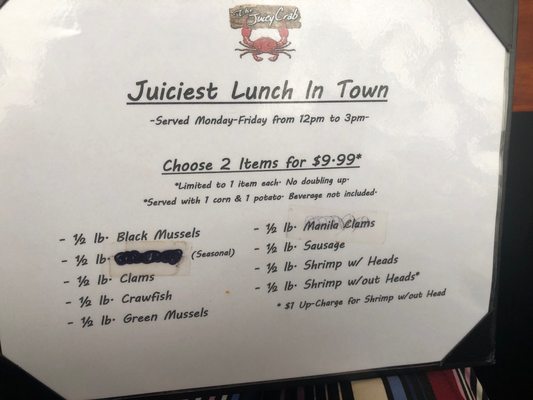 The Juicy Crab
Juiciest Lunch In Town
-Served Monday-Friday from 12pm to 3pm-
Choose 2 Items for $9.99*
*Limited to 1 item each. No doubling up.
*Served with 1 corn & 1 potato. Beverage not included.
- ½ lb. Black Mussels
- ½ lb. (Seasonal)
- ½ lb. Clams
- ½ lb. Crawfish
- ½ lb. Green Mussels
- ½ lb. Manila Clams
- ½ lb. Sausage
- ½ lb. Shrimp w/ Heads
- ½ lb. Shrimp w/out Heads*
* $1 Up-Charge for Shrimp w/out Head